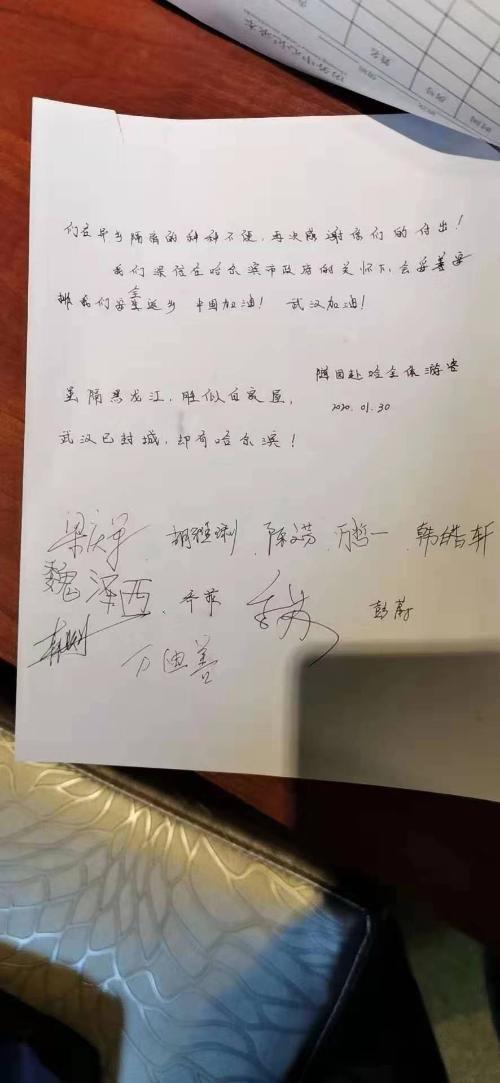 们在单方隔离的种种不便，再次感谢你们的付出！
我们深信在哈尔滨市政府的关怀下，会妥善安
排我们安全返乡 中国加油！ 武汉加油！
鄂回赴哈全体游客
虽隔黑龙江，胜似自家屋，
2020.01.30
武汉已封城，却有哈尔滨！
梁庆军 胡雅琍 陈文芳 万哲一 韩皓轩
魏泽西 乔苹 李苏 彭蔚
万迪善